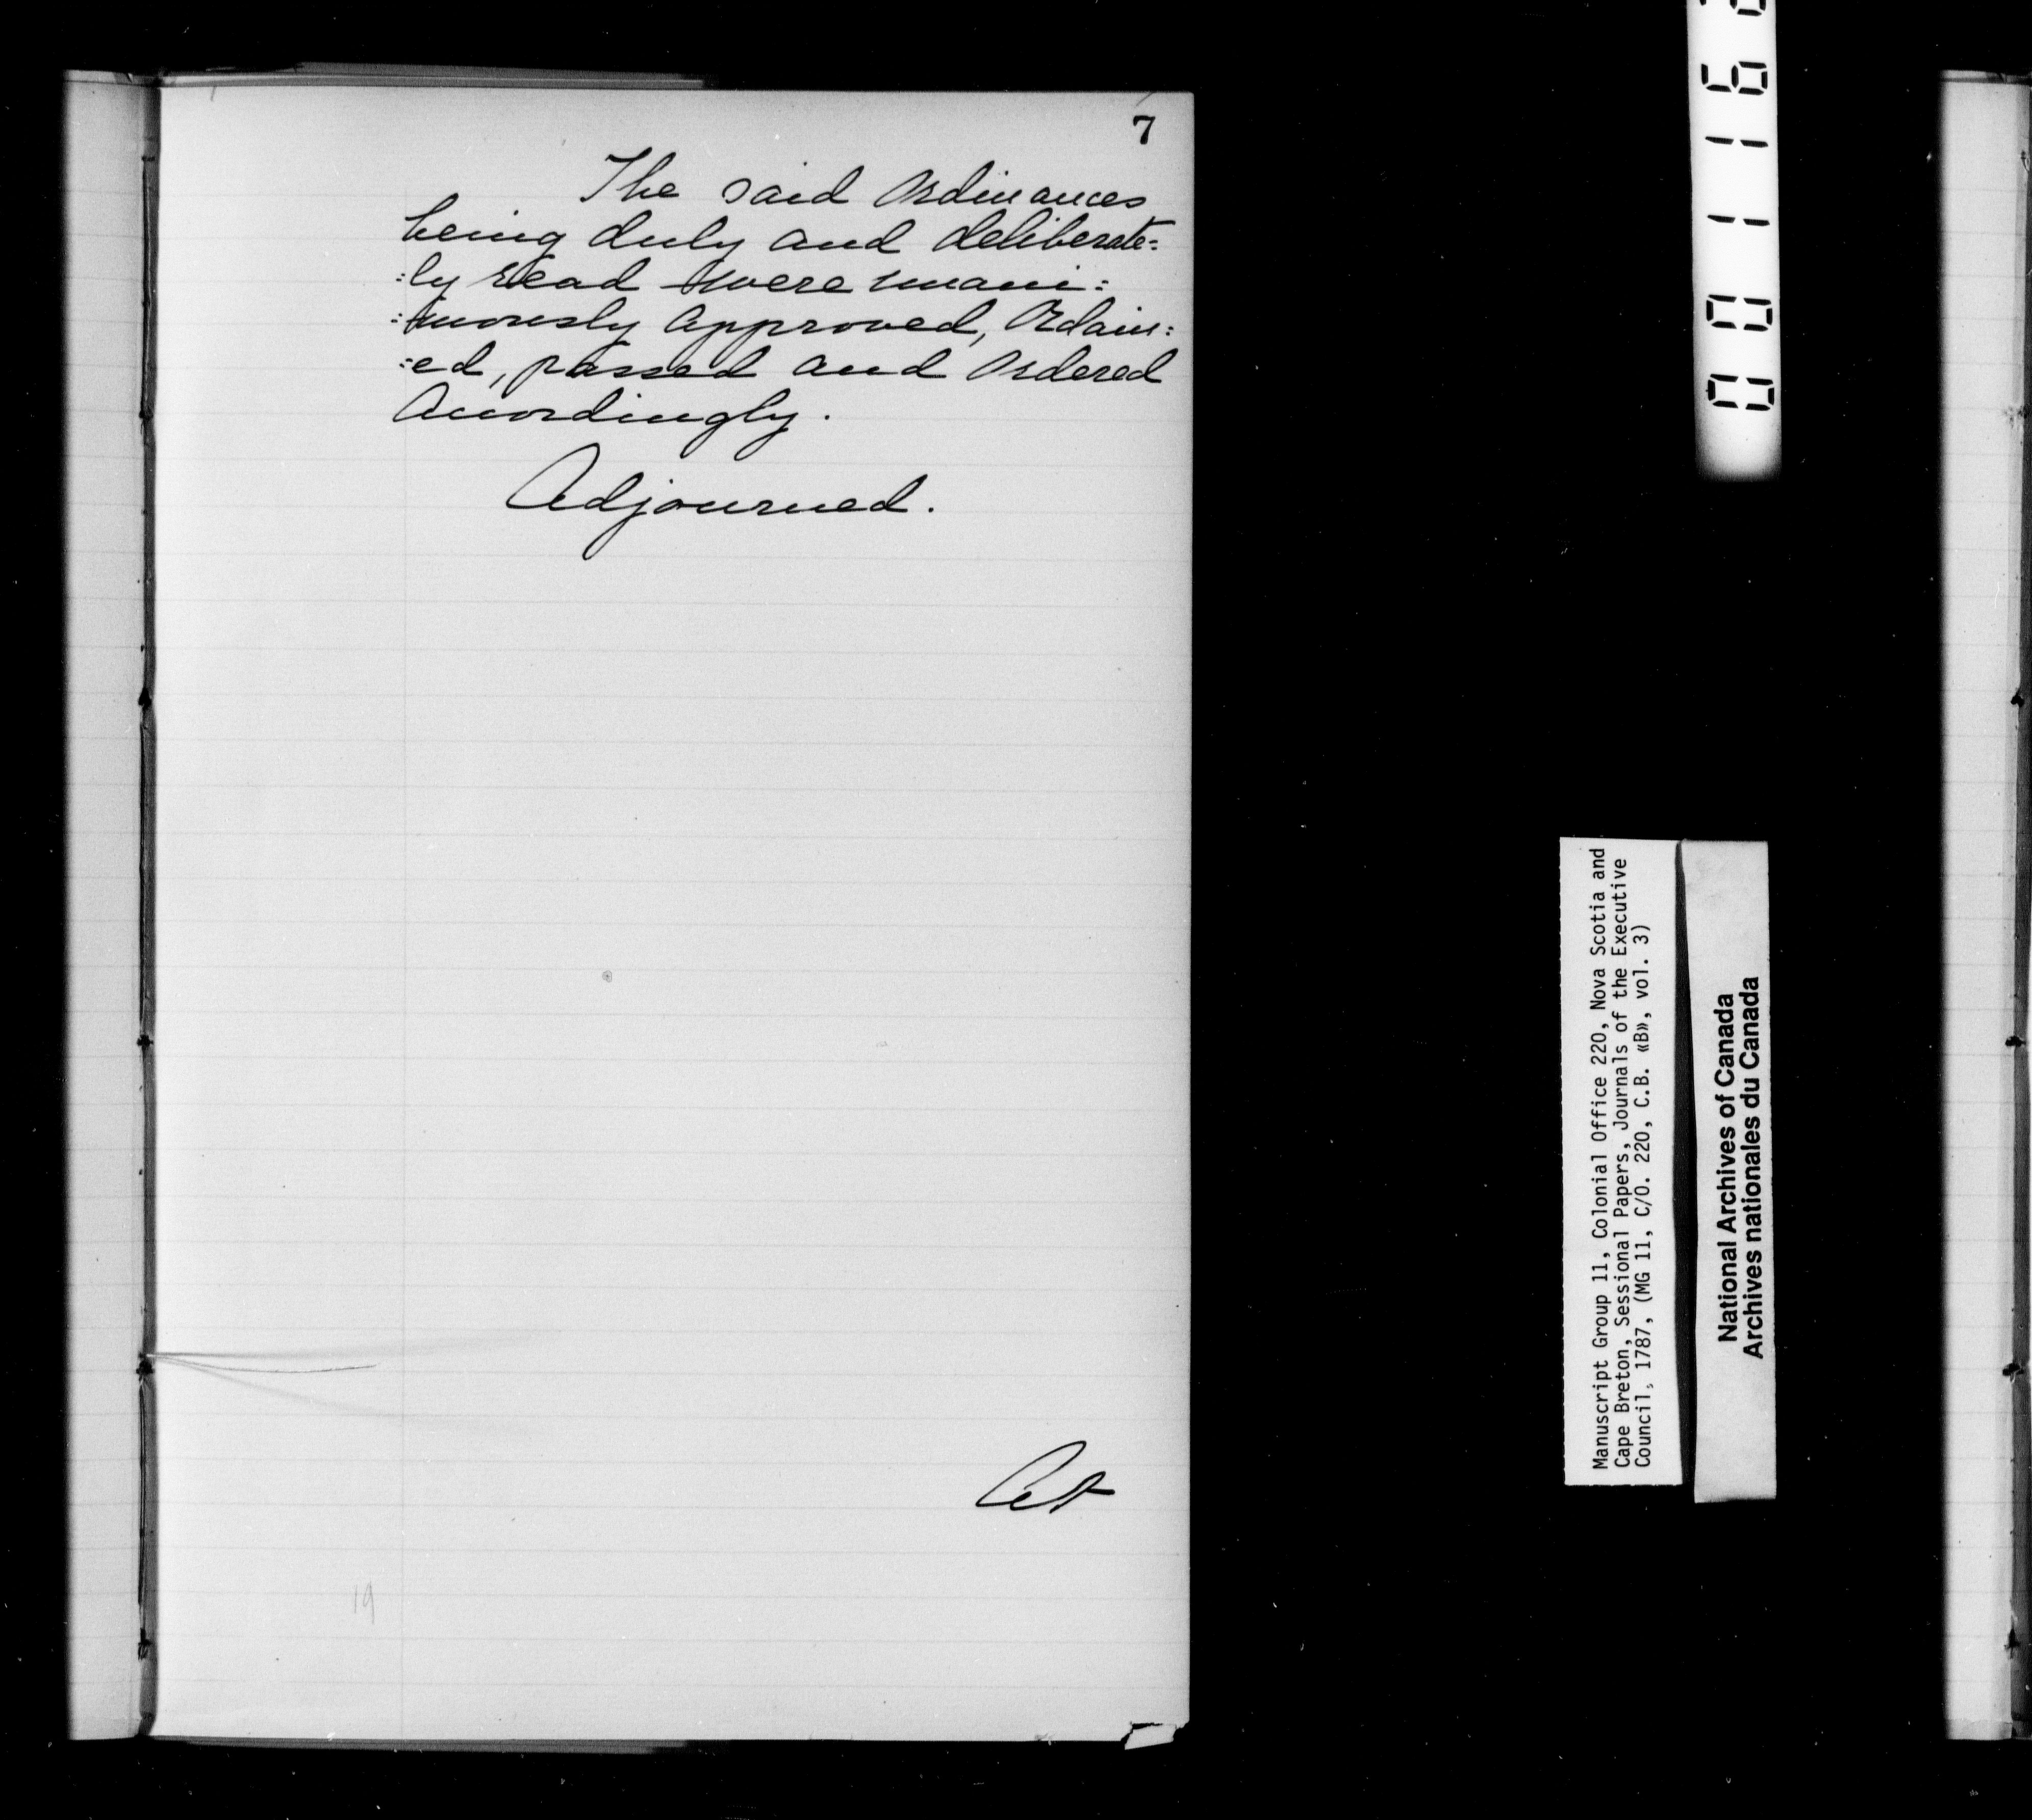 7
The said Ordinances
being duly and deliberate=
:ly read were unani:
:mously approved, Ordain:
:ed, passed and Ordered
Accordingly.
Adjourned.
At
19
Manuscript Group 11, Colonial Office 220, Nova Scotia and
Cape Breton, Sessional Papers, Journals of the Executive
Council, 1787, (MG 11, C/O. 220, C.B. «B», vol. 3)
National Archives of Canada
Archives nationales du Canada
001116